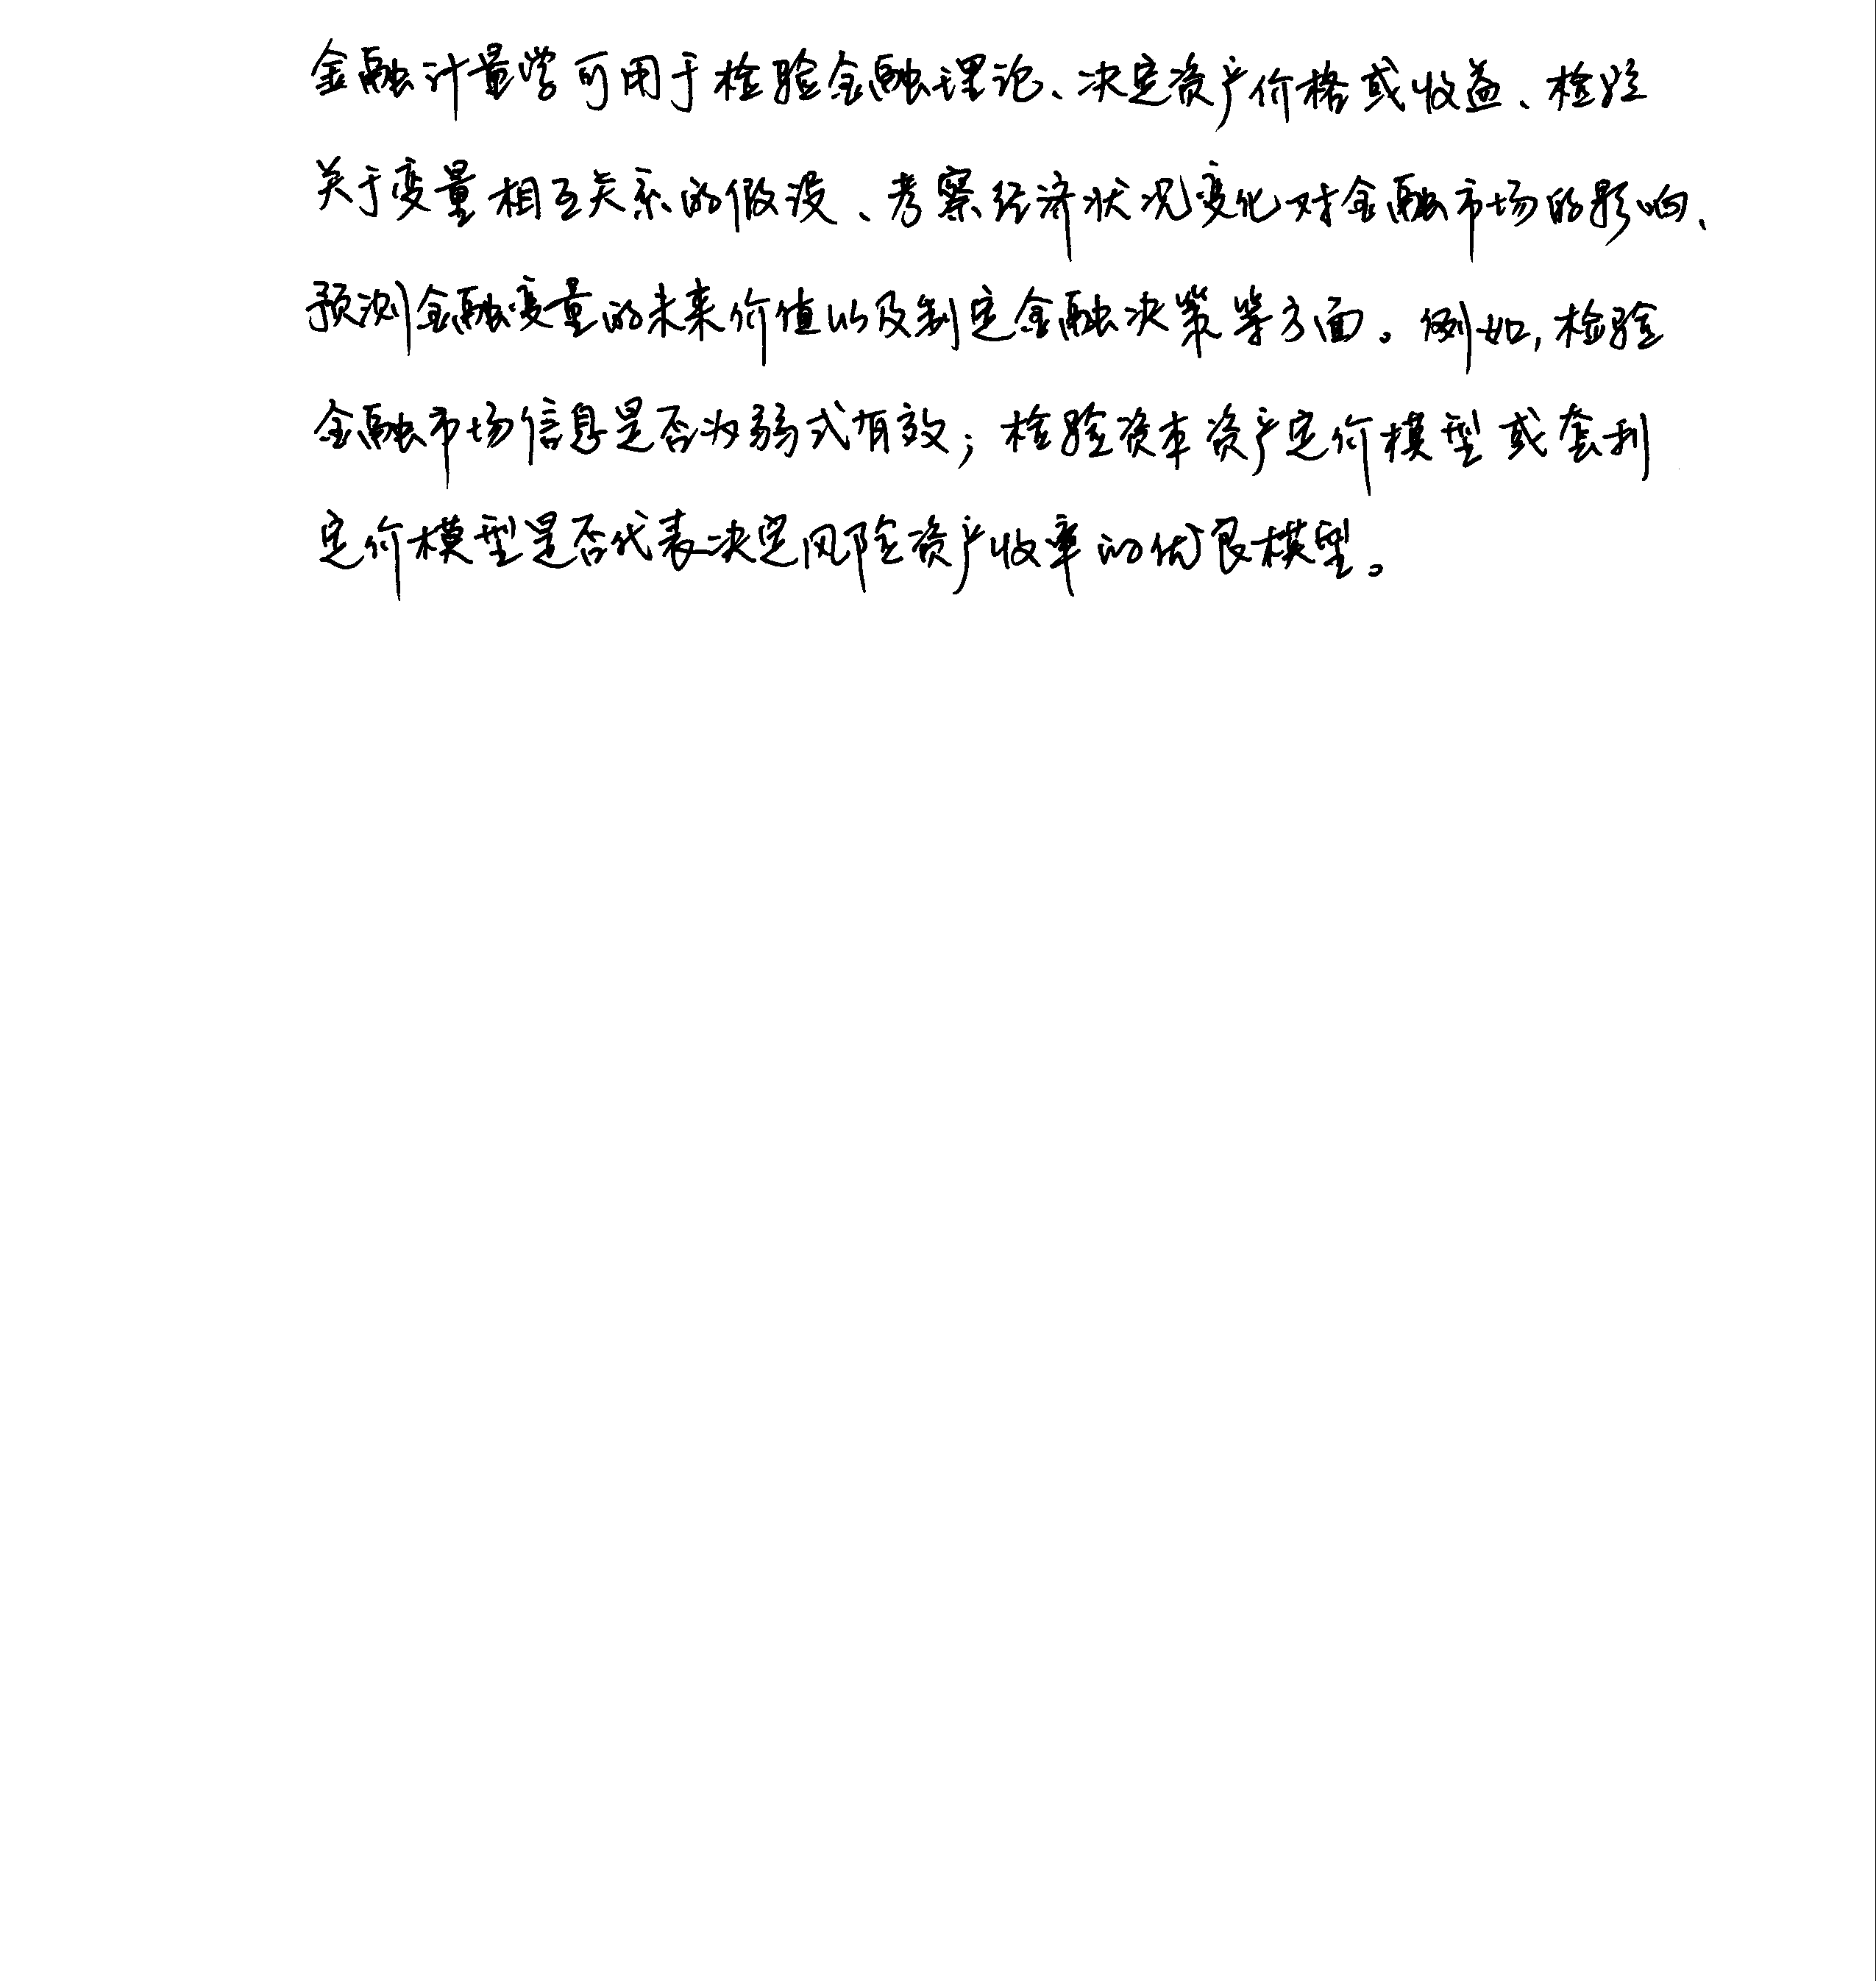 金融计量学可用于检验金融理论、决定资产价格或收益、检验
关于变量相互关系的假设、考察经济状况变化对金融市场的影响、
预测金融变量的未来价值以及制定金融决策等方面。例如,检验
金融市场信息是否为弱式有效;检验资本资产定价模型或套利
定价模型是否代表决定风险资产收率的优良模型。